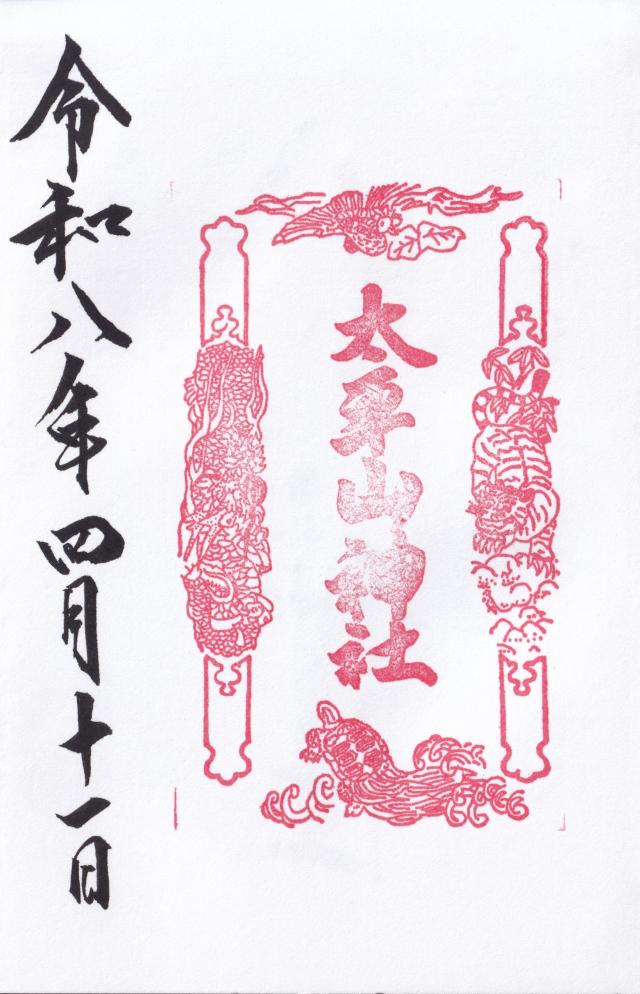 太平山神社
令和八年四月十一日